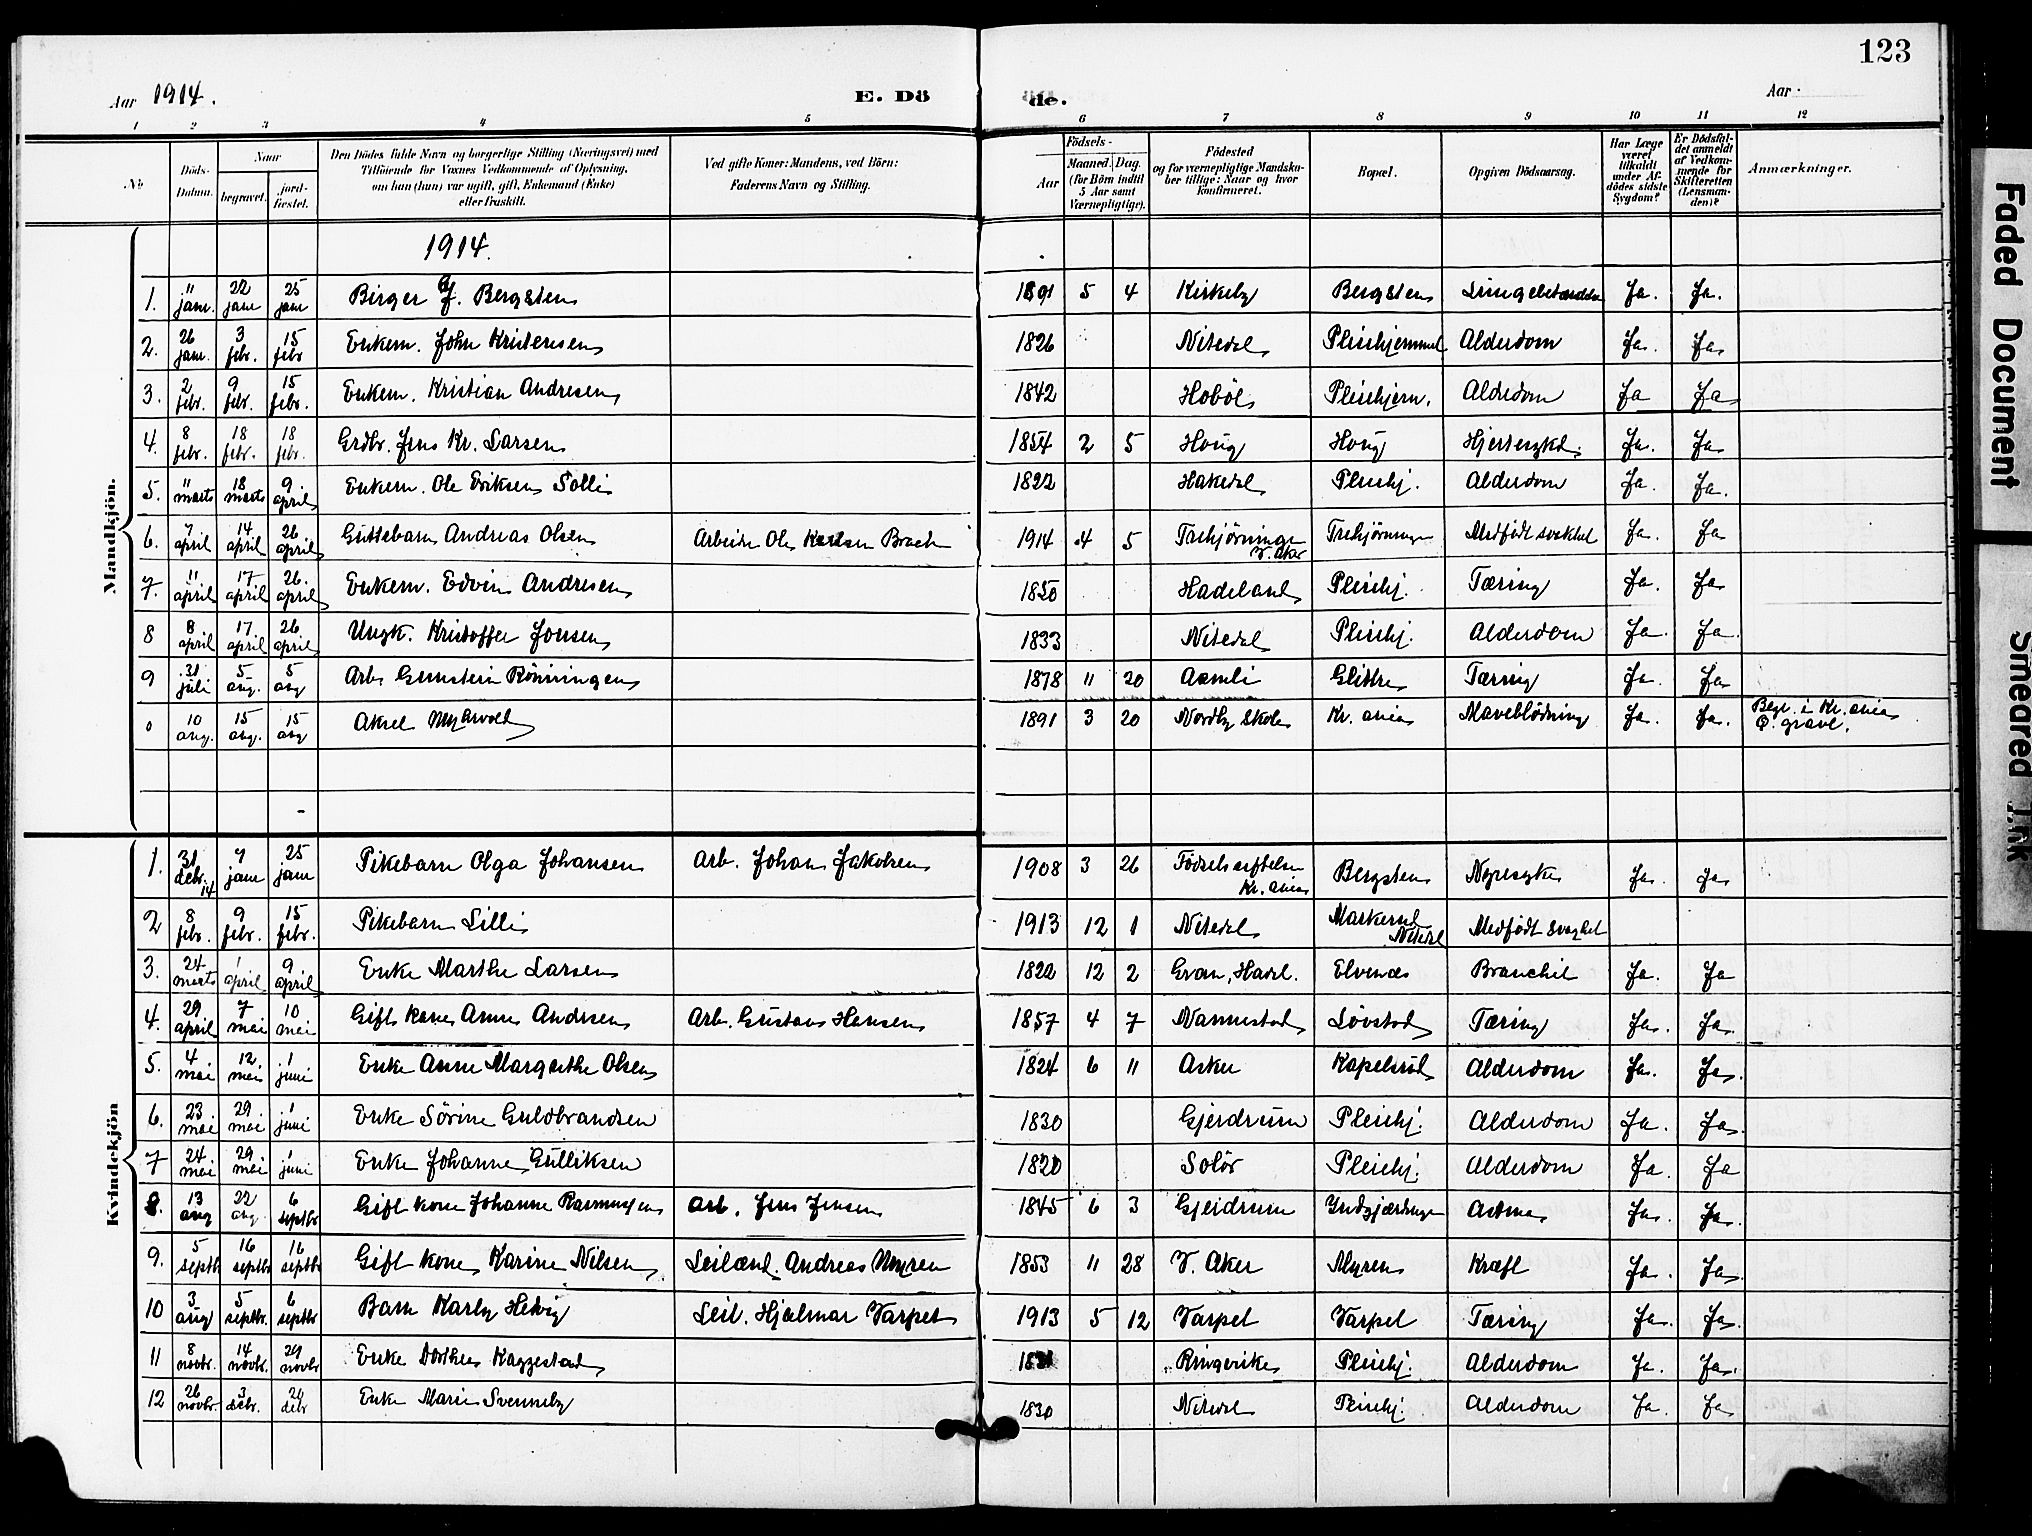 123
Aar 1914.
E. Dö
de.
Aar
1 2 3 4 5 6 7 8 9 10 11 12
No
Döds-Datum.
Naar
begravet.
jord-fæstet.
Den Dödes fulde Navn og borgerlige Stilling (Næringsvei) med Tilföiende for Voxnes Vedkommende af Oplysning, om han (hun) var ugift, gift, Enkemand (Enke) eller fraskilt.
Ved gifte Koner: Mandens, ved Börn: Faderens Navn og Stilling.
Födsels-
Aar
Maaned. Dag.
(for Börn indtil 5 Aar samt Værnepligtige).
Födested og for værnepligtige Mandska-ber tillige: Naar og hvor konfirmeret.
Bopæl.
Opgiven Dödsaarsag.
Har Læge været tilkaldt under Af-dödes sidste Sygdom?
Er Dödsfal-det anmeldt af Vedkom-mende for Skifteretten (Lensman-den)?
Anmærkninger.
Mandkjön.
1914.
1. 11 jan. 22 jan 25 jan Birger J. Bergsten 1891 5 4 Kirkeby Bergsten Ja. Ja.
2. 26 jan. 3 febr. 15 febr Enkem. John Kristensen 1826 Nitedal Pleiehjemmet Alderdom Ja. Ja
3. 2 febr. 9 febr. 15 febr. Enkem. Kristian Andresen 1842 Hoböl Pleiehjem. Alderdom Ja Ja
4. 8 febr. 18 febr. 18 febr. Grdbr. Jens Kr. Larsen 1854 2 5 Houg Houg Hjertesykd. Ja. Ja
5. 11 marts 18 marts 9 april Enkem. Ole Eriksen Solli 1822 Hakedal Pleiehj. Alderdom Ja. Ja.
6. 7 april 14 april 26 april Guttebarn Andreas Olsen Arbeider Ole Karlsen 1914 4 5 V. Aker Medfödt svakhet Ja. Ja
7. 11 april 17 april 26. april Enkem. Edvin Andresen 1850 Hadeland Pleiehj. Tæring Ja. Ja
8 8 april 17 april 26 april Ungk. Kristoffer Jonsen 1833 Nitedal Pleiehj. Alderdom Ja. Ja.
9 31 juli 5 aug. 5 aug Arb. Gunstein Rönningen 1878 11 20 Aamli Glittre Tæring Ja. Ja
10 aug. 15 aug. 15 aug Aksel Myhrvold 1891 3 20 Nordby Skole Kr.ania Maveblödning Ja. Ja. Begr. i Kr.ania
Kvindekjön
1. 31 debr. 14 7 jan 25 jan Pikebarn Olga Johansen Arb. Johan Jakobsen 1908 3 26 Födselsstiftelsen Kr.ania Bergsten Nyresyke Ja. Ja
2 8 febr. 9 febr. 15 febr. Pikebarn Lilli 1913 12 1 Nitedal Markerud Nitedal Medfödt svaghet
3. 24 marts 1 april 9 april Enke Marthe Larsen 1822 12 2 Gran, Hadel. Elvenæs Bronchit Ja. Ja
4. 29 april 7 mai 10 mai Gift kone Anne Andersen Arb. Gustav Hansen 1857 4 7 Nannestad Lövstad Tæring Ja. Ja.
5. 4 mai 12 mai 1 juni Enke Anne Margrethe Olsen 1824 6 11 Asker Kapelsrud Alderdom Ja. Ja.
6. 23 mai 29 mai 1 juni Enke Sörine Guldbrandsen 1830 Gjerdrum Pleiehj. Alderdom Ja. Ja.
7 24 mai 29 mai 1 juni Enke Johanne Gulliksen 1820 Solör Pleiehj. Alderdom Ja Ja
8. 13 aug 22 aug. 6 septbr Gift kone Johanne Rasmussen Arb. Jens Jensen 1845 6 3 Gjerdrum Astma Ja. Ja.
9. 5 septbr 16 septbr 16 septbr Gift kone Karine Nilsen Leilænd. Andreas Myren 1853 11 28 V. Aker Myren Kræft Ja. Ja.
10 3 aug 5 septbr. 6 septbr Barn Karly Helvig Leil. Hjalmar Varpet 1913 5 12 Varpet Varpet Tæring Ja. Ja.
11 8 novbr. 14 novbr. 29 novbr Enke Dorthea Kaggestad Ringerike Pleiehj. Alderdom Ja. Ja.
12 26 novbr. 3 debr. 20 debr Enke Marie Svenneby 1830 Nitedal Pleiehj. Alderdom Ja. Ja
Faded Document
Smeared Ink